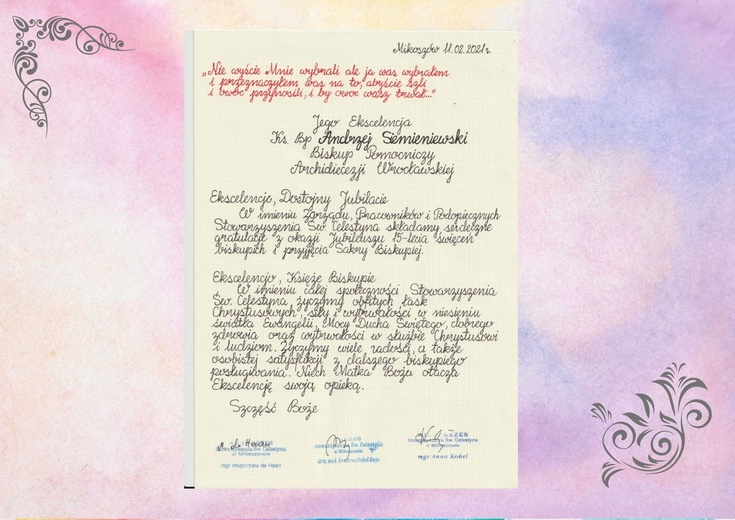 Mikoszów 11.02.2021r.
„Nie wyście Mnie wybrali ale ja was wybrałem
i przeznaczyłem was na to, abyście szli
i owoc przynosili, i by owoc wasz trwał..."
Jego Ekscelencja
Ks. Bp Andrzej Siemieniewski
Biskup Pomocniczy
Archidiecezji Wrocławskiej
Ekscelencjo, Dostojny Jubilacie
W imieniu Zarządu, Pracowników i Podopiecznych
Stowarzyszenia Św. Celestyna składamy serdeczne
gratulacje z okazji Jubileuszu 15-lecia święceń
biskupich i przyjęcia Sakry Biskupiej.
Ekscelencjo, Księże Biskupie
W imieniu całej społeczności Stowarzyszenia
Św. Celestyna, życzymy obfitych łask
Chrystusowych, siły i wytrwałości w niesieniu
światła Ewangelii, Mocy Ducha Świętego, dobrego
zdrowia oraz wytrwałości w służbie Chrystusowi
i ludziom. Życzymy wiele radości, a także
osobistej satysfakcji z dalszego biskupiego
posługiwania. Niech Matka Boża otacza
Ekscelencję swoją opieką.
Szczęść Boże
Stowarzyszenia Św. Celestyna
w Mikoszowie
mgr Małgorzata de Haan
Stowarzyszenia Św. Celestyna
w Mikoszowie
PREZES
Stowarzyszenia Św. Celestyna
w Mikoszowie
mgr Anna Kobel